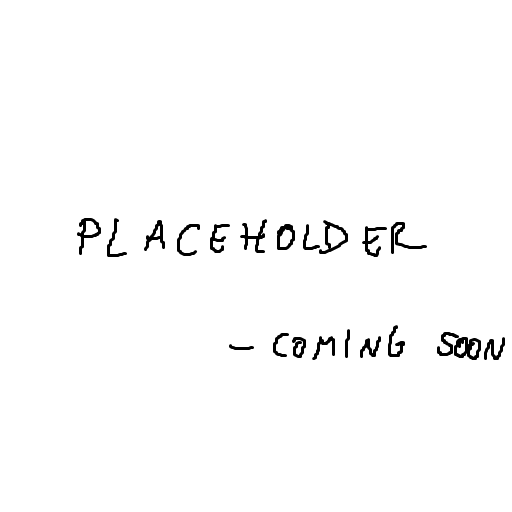 PLACEHOLDER
- COMING SOON